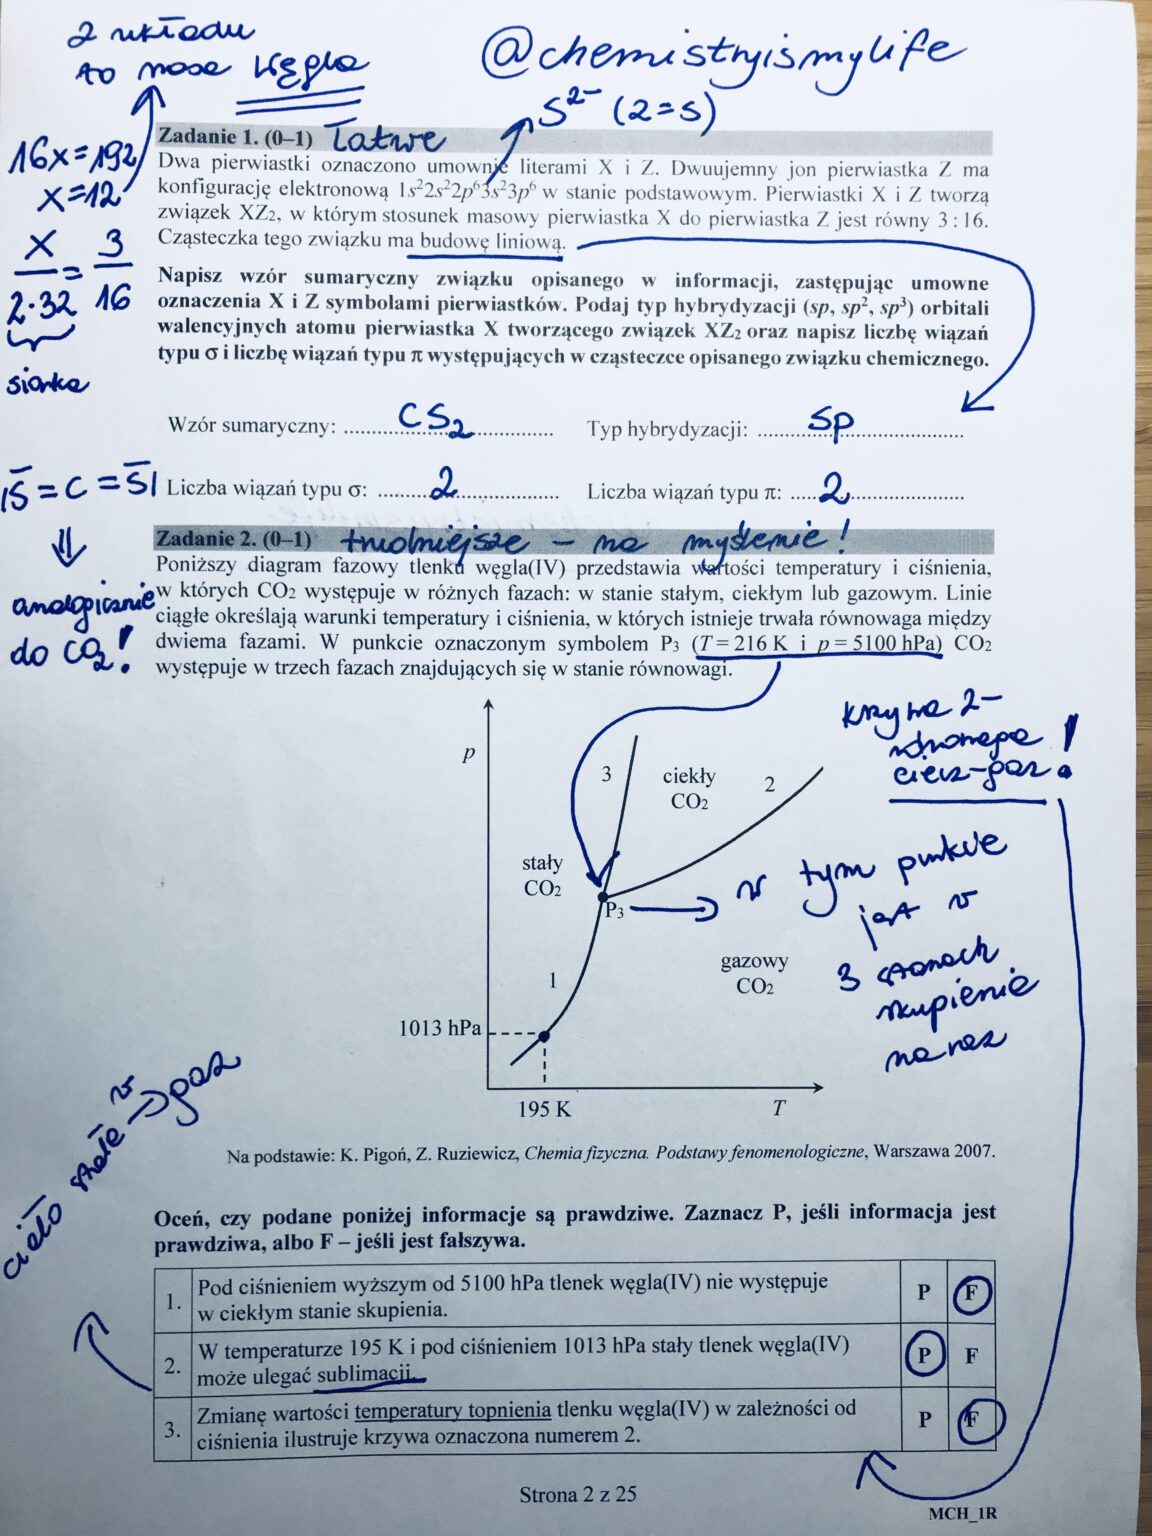 z układu
to masa węgla
@chemistryismylife
S²⁻ (2=s)
16x=192
x=12
X/2·32 = 3/16
siarka
Zadanie 1. (0–1) łatwe
Dwa pierwiastki oznaczono umownie literami X i Z. Dwuujemny jon pierwiastka Z ma
konfigurację elektronową 1s²2s²2p⁶3s²3p⁶ w stanie podstawowym. Pierwiastki X i Z tworzą
związek XZ₂, w którym stosunek masowy pierwiastka X do pierwiastka Z jest równy 3 : 16.
Cząsteczka tego związku ma budowę liniową.
Napisz wzór sumaryczny związku opisanego w informacji, zastępując umowne
oznaczenia X i Z symbolami pierwiastków. Podaj typ hybrydyzacji (sp, sp², sp³) orbitali
walencyjnych atomu pierwiastka X tworzącego związek XZ₂ oraz napisz liczbę wiązań
typu σ i liczbę wiązań typu π występujących w cząsteczce opisanego związku chemicznego.
Wzór sumaryczny: CS₂ Typ hybrydyzacji: sp
Liczba wiązań typu σ: 2 Liczba wiązań typu π: 2
|S̅=C=S̅|
⇓
analogicznie
do CO₂!
Zadanie 2. (0–1) trudniejsze – na myślenie!
Poniższy diagram fazowy tlenku węgla(IV) przedstawia wartości temperatury i ciśnienia,
w których CO₂ występuje w różnych fazach: w stanie stałym, ciekłym lub gazowym. Linie
ciągłe określają warunki temperatury i ciśnienia, w których istnieje trwała równowaga między
dwiema fazami. W punkcie oznaczonym symbolem P₃ (T = 216 K i p = 5100 hPa) CO₂
występuje w trzech fazach znajdujących się w stanie równowagi.
p
3
ciekły
CO₂
2
stały
CO₂
P₃
gazowy
CO₂
1
1013 hPa
195 K
T
krzywa 2–
równowaga
ciecz–gaz!
w tym punkcie
jest w
3 stanach
skupienia
na raz
ciało stałe w → gaz
Na podstawie: K. Pigoń, Z. Ruziewicz, Chemia fizyczna. Podstawy fenomenologiczne, Warszawa 2007.
Oceń, czy podane poniżej informacje są prawdziwe. Zaznacz P, jeśli informacja jest
prawdziwa, albo F – jeśli jest fałszywa.
1. Pod ciśnieniem wyższym od 5100 hPa tlenek węgla(IV) nie występuje
w ciekłym stanie skupienia. P F
2. W temperaturze 195 K i pod ciśnieniem 1013 hPa stały tlenek węgla(IV)
może ulegać sublimacji. P F
3. Zmianę wartości temperatury topnienia tlenku węgla(IV) w zależności od
ciśnienia ilustruje krzywa oznaczona numerem 2. P F
Strona 2 z 25
MCH_1R